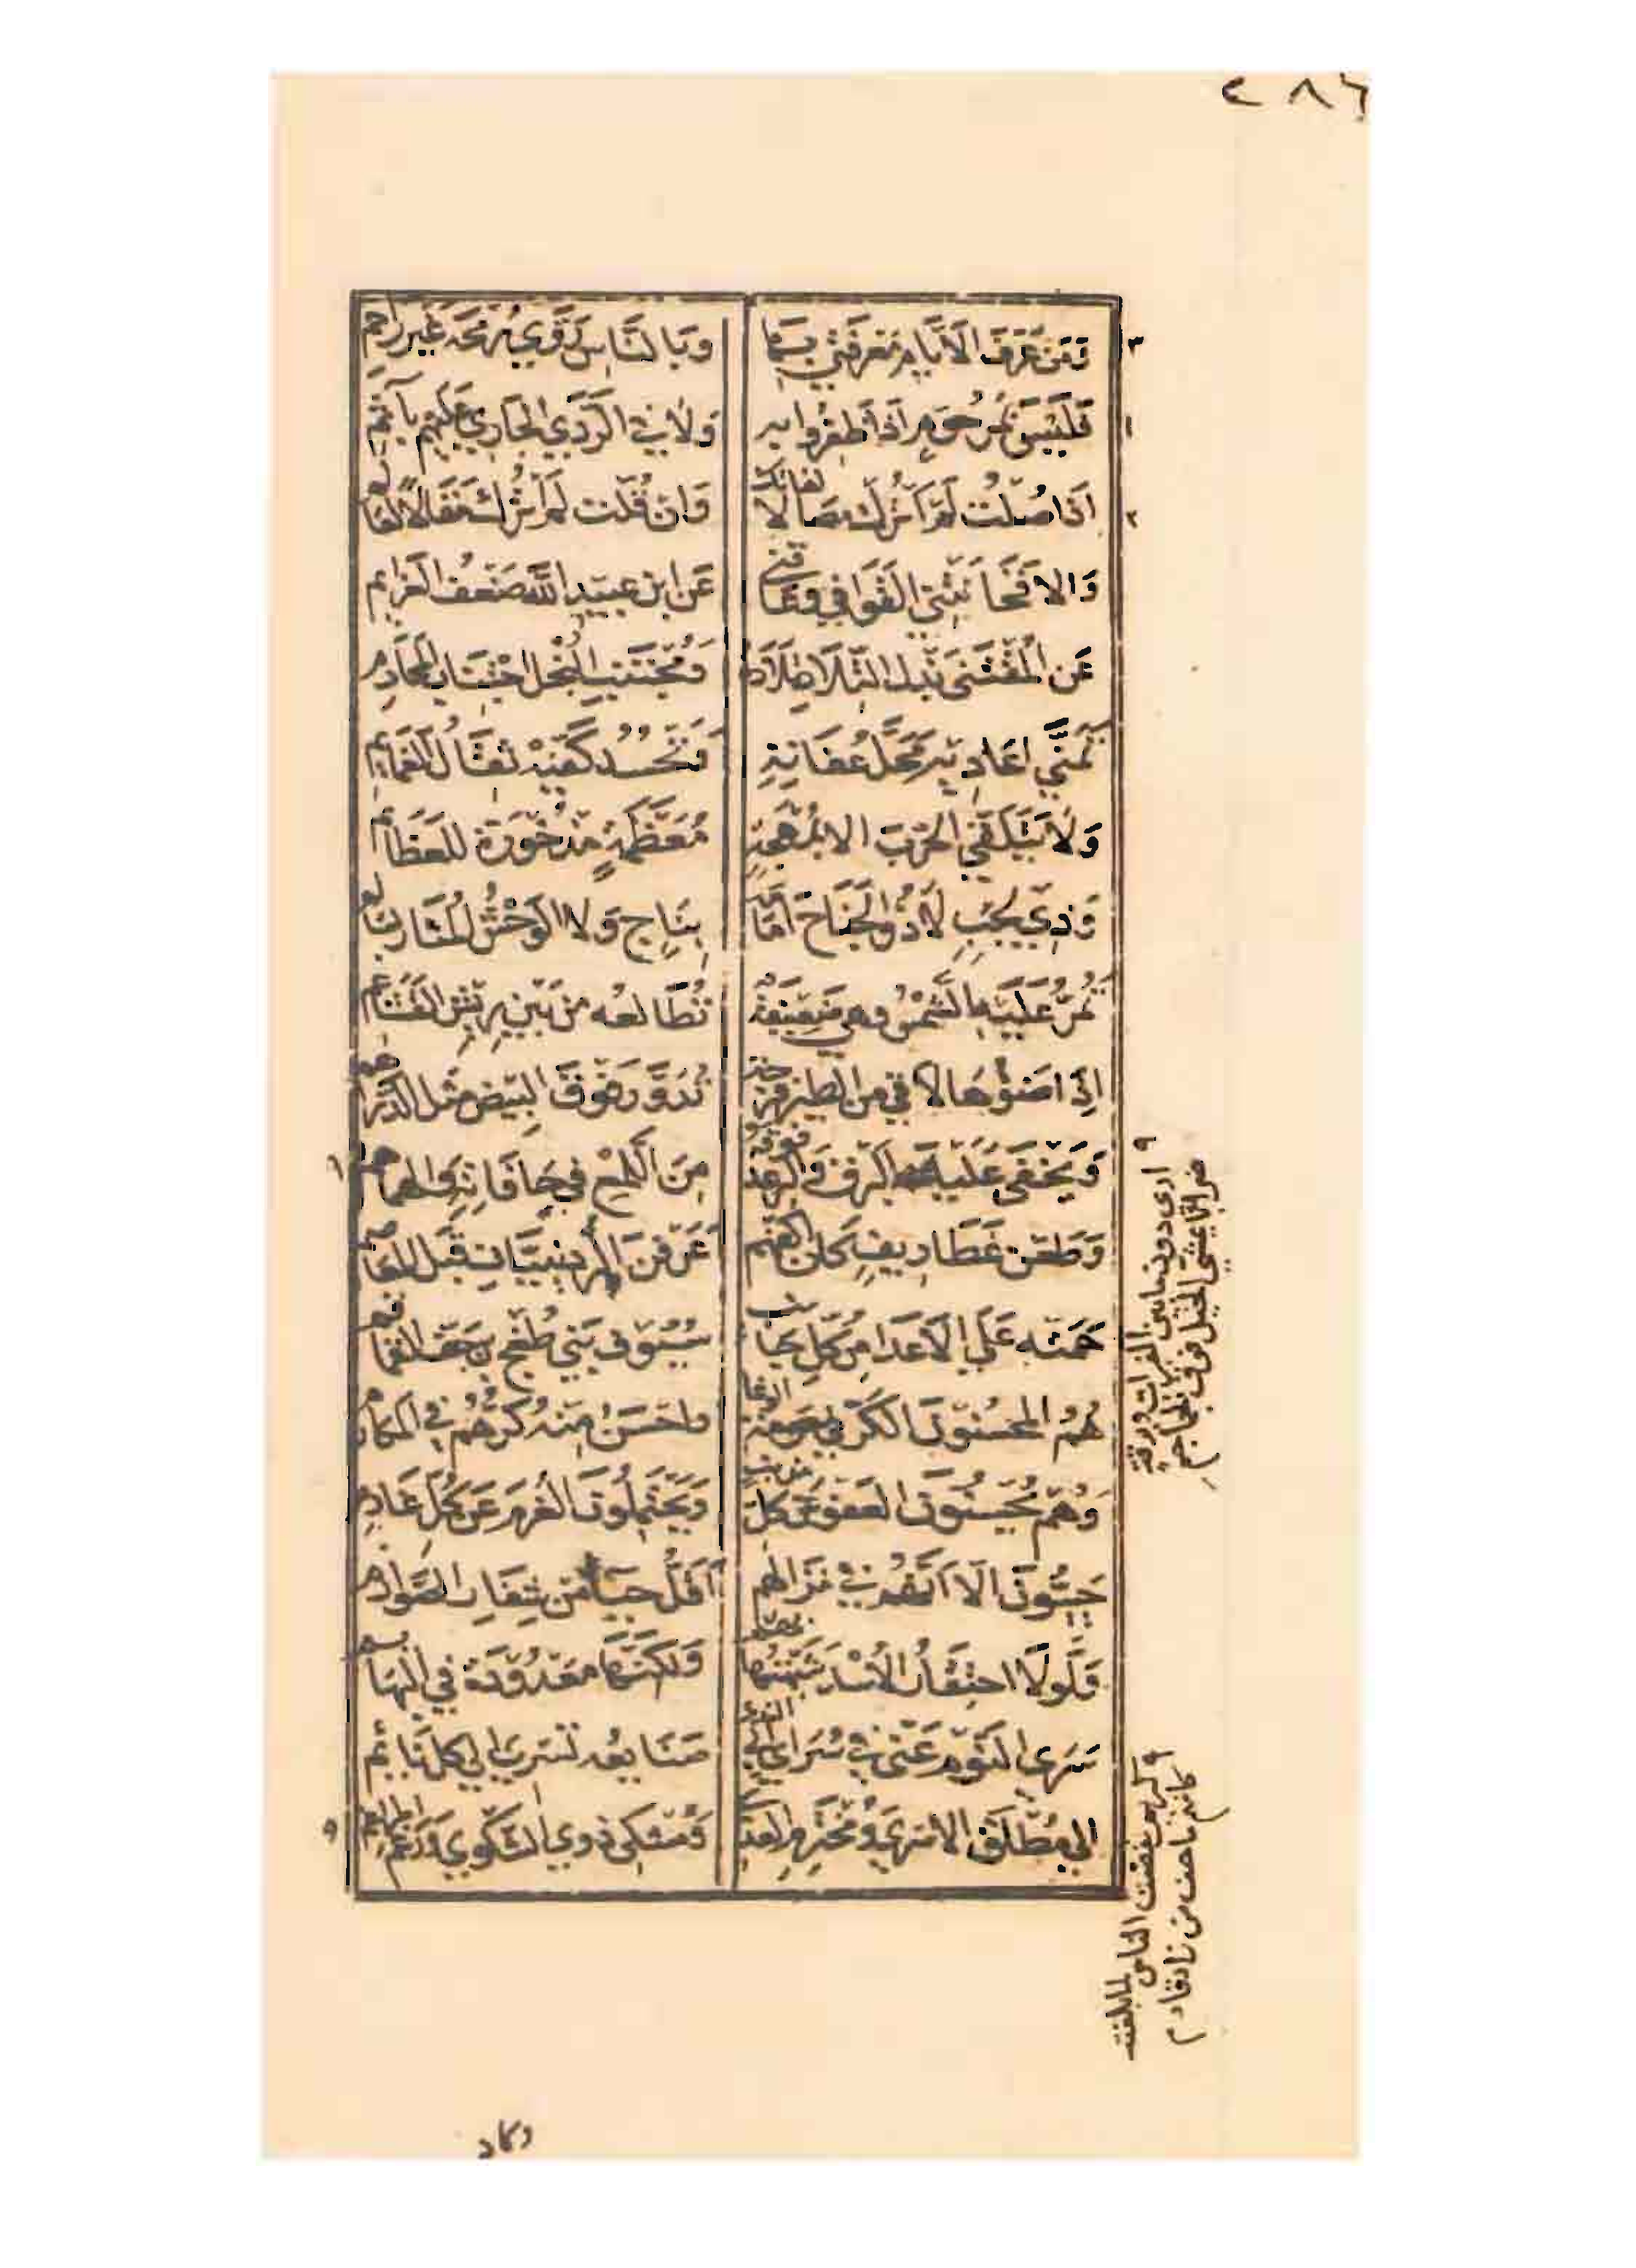 ٢٨٦
٣ وَمَن عَرَفَ الاَيَّامَ مَعرفَتي بِهَا وَبالنَّاسِ رَوَّي رُمحَهُ غَيرَ رَاحِمِ
١ فَلَيسَ بمَرحُومٍ اذَا ظَفِرُوا بِه وَلَا في الرَّدَي الجَارِي عَلَيهِم بآثِمِ
٢ اذَا صُلتُ لَم اَترُك مَصَالًا لفاتك وَان قُلتُ لَم اَترُك مَقَالًا لعالم
وَالا فَخَانَتني القَوافِي وَعَاقَني عَن ابنِ عبَيدِ اللَّه ضَعفُ العَزايم
عَن المُقتَني بَذلَ التِّلَادِ تِلَادَهُ وَمُجتَنِبِ البُخلِ اجتِنَابَ المحَارِمِ
تَمَنَّي اعَادِيهِ مَحَلَّ عُفَاتِهِ وَتَحسُدُ كَفَّيهِ ثِقَالُ الغَمَايِمِ
وَلَا يَتَلَقَّي الحَربَ الا بمُهجَةٍ مُعَظَّمَةٍ مَذخُورَةٍ للعَظَائم
وَذِي لَجَبٍ لَا ذُو الجَنَاحِ اَمَامَهُ بِنَاجٍ وَلا الوَحشُ المُثَارُ بسَالم
تَمُرُّ عَلَيهِ الشَّمسُ وهي ضَعِيفَةٌ تُطَالعُه مِن بَينِ رِيشِ القَشَاعم
اِذَا ضَوؤُهَا لاقي من الطيرِ فُرجَة تَدَوَّرَ فَوقَ البَيضِ مثلَ الدَّرَاهم
وَيَخفَي عَلَيك البَرقُ وَالرعدُ فوقه مِنَ اللَّمعِ في حَافَاتِهِ وَالهمَاهم
وَطَعنَ غَطَارِيفٍ كَانَ اَكُفَّهُم عَرَفنَ الرُّدَينِيَّاتِ قَبلَ المعَاصم
حَمَتهُ عَلَي الاَعدَا مِن كُلِّ جَانب سُيُوفُ بَني طُغجِ بنِ جُفِّ القَمَاقم
هُمُ المحسِنُونَ الكَرَّ في حَومَةِ الوغا وَاحسَنُ مِنهُ كَرُّهُم في المكَارم
وَهُم يُحسِنُونَ العَفوَ عَن كُلِّ مذنب وَيَحتَمِلُونَ الغُرمَ عَن كُلِّ غَارِمِ
حَيِيُّونَ الَّا اَنَّهُم في نِزَالِهم اَقَلُّ حَيَاءً مِن شِفَارِ الصَّوَارِم
وَلَولَا احتِقَارُ الاُسدِ شَبَّهتُهَا بهم وَلكنَّهَا مَعدُودَةٌ في البهَايم
سَرَي النَّومُ عَنِّي في سُرَايَ الي الذي صَنَايعُه تَسرِي الي كلِّ نَايِم
الي مُطلِقِ الاَسرَي وَمُختَرِمِ العدا وَمُشكِي ذوي الشَّكوي وَرَغم المراغم
٩ ارى دون ما بين الفرات وبرقة
ضرابا يمشي الخيل فوق الجماجم
٩ كريم نفضت الناس لما بلغته
كانهم ما جف من زاد قادم
وكاد